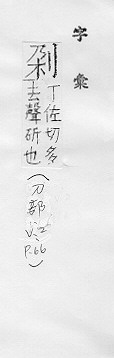 字彙
刴
丁佐切多
去聲斫也
(刀部
P.66)